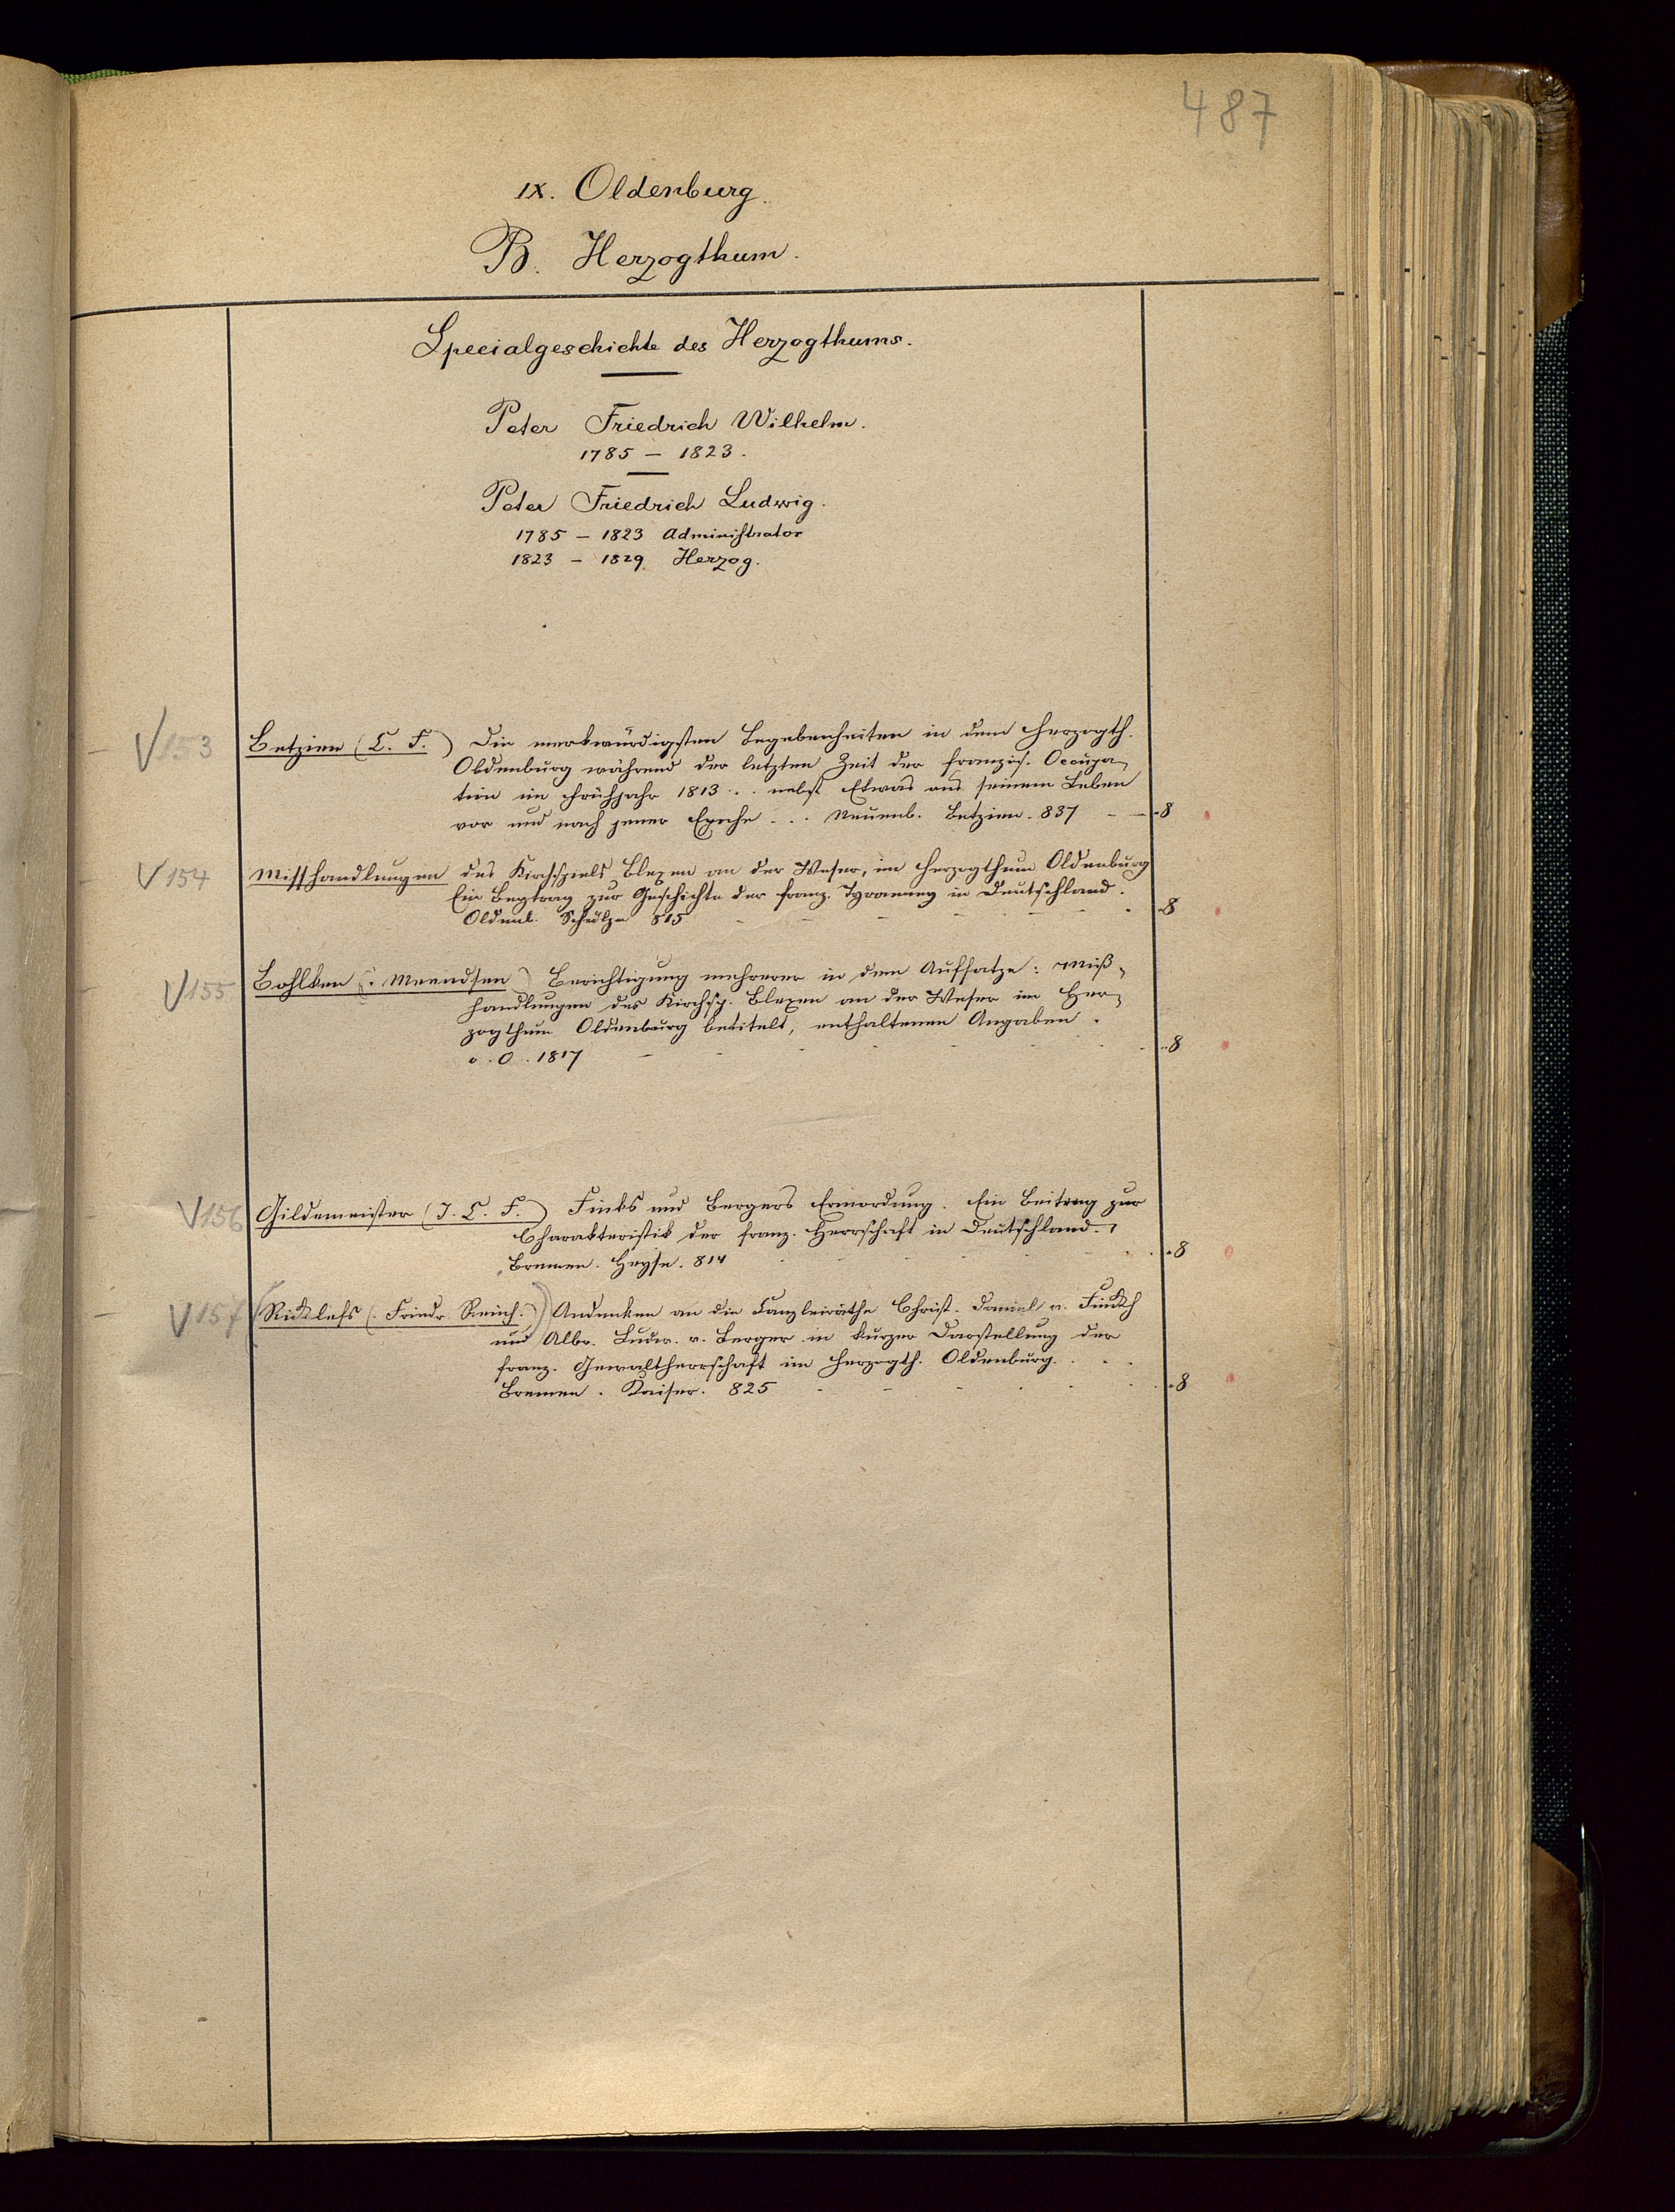 487
IX. Oldenburg.
B. Herzogthum.
Specialgeschichte des Herzogthums.
Peter Friedrich Wilhelm.
1785 – 1823.
Peter Friedrich Ludwig.
1785 – 1823 Administrator
1823 – 1829. Herzog.
V153 Betzien (C. F.) Die merkwürdigsten Begebenheiten in dem Herzogth.
Oldenburg während der letzten Zeit der französ. Occupa-
tion im Frühjahr 1813 . . nebst Etwas aus seinem Leben
vor und nach jener Epoche . . . Neuenb. Betzien. 837 – – 8
V154 Misshandlungen des Kirchspiels Blexen an der Weser, im Herzogthum Oldenburg
Ein Beytrag zur Geschichte der franz. Tyranney in Deutschland.
Oldenb. Schulze 815 8
V155 Bohlken (. Meendsen) Berichtigung mehrerer in dem Aufsatze: Miß-
handlungen des Kirchsp. Blexen an der Weser im Her-
zogthum Oldenburg betitelt, enthaltenen Angaben.
o. O. 1817 8
V156 Gildemeister (J. C. F.) Finks und Bergers Ermordung. Ein Beitrag zur
Charakteristik der franz. Herrschaft in Deutschland.
Bremen. Heyse. 814 8
V157 (Ricklefs (. Friedr. Reinh.)) Andenken an die Canzleiräthe Christ. Daniel v. Finckh
und Albr. Ludw. v. Berger in kurzer Darstellung der
franz. Gewaltherrschaft im Herzogth. Oldenburg. . .
Bremen. Kaiser. 825 8